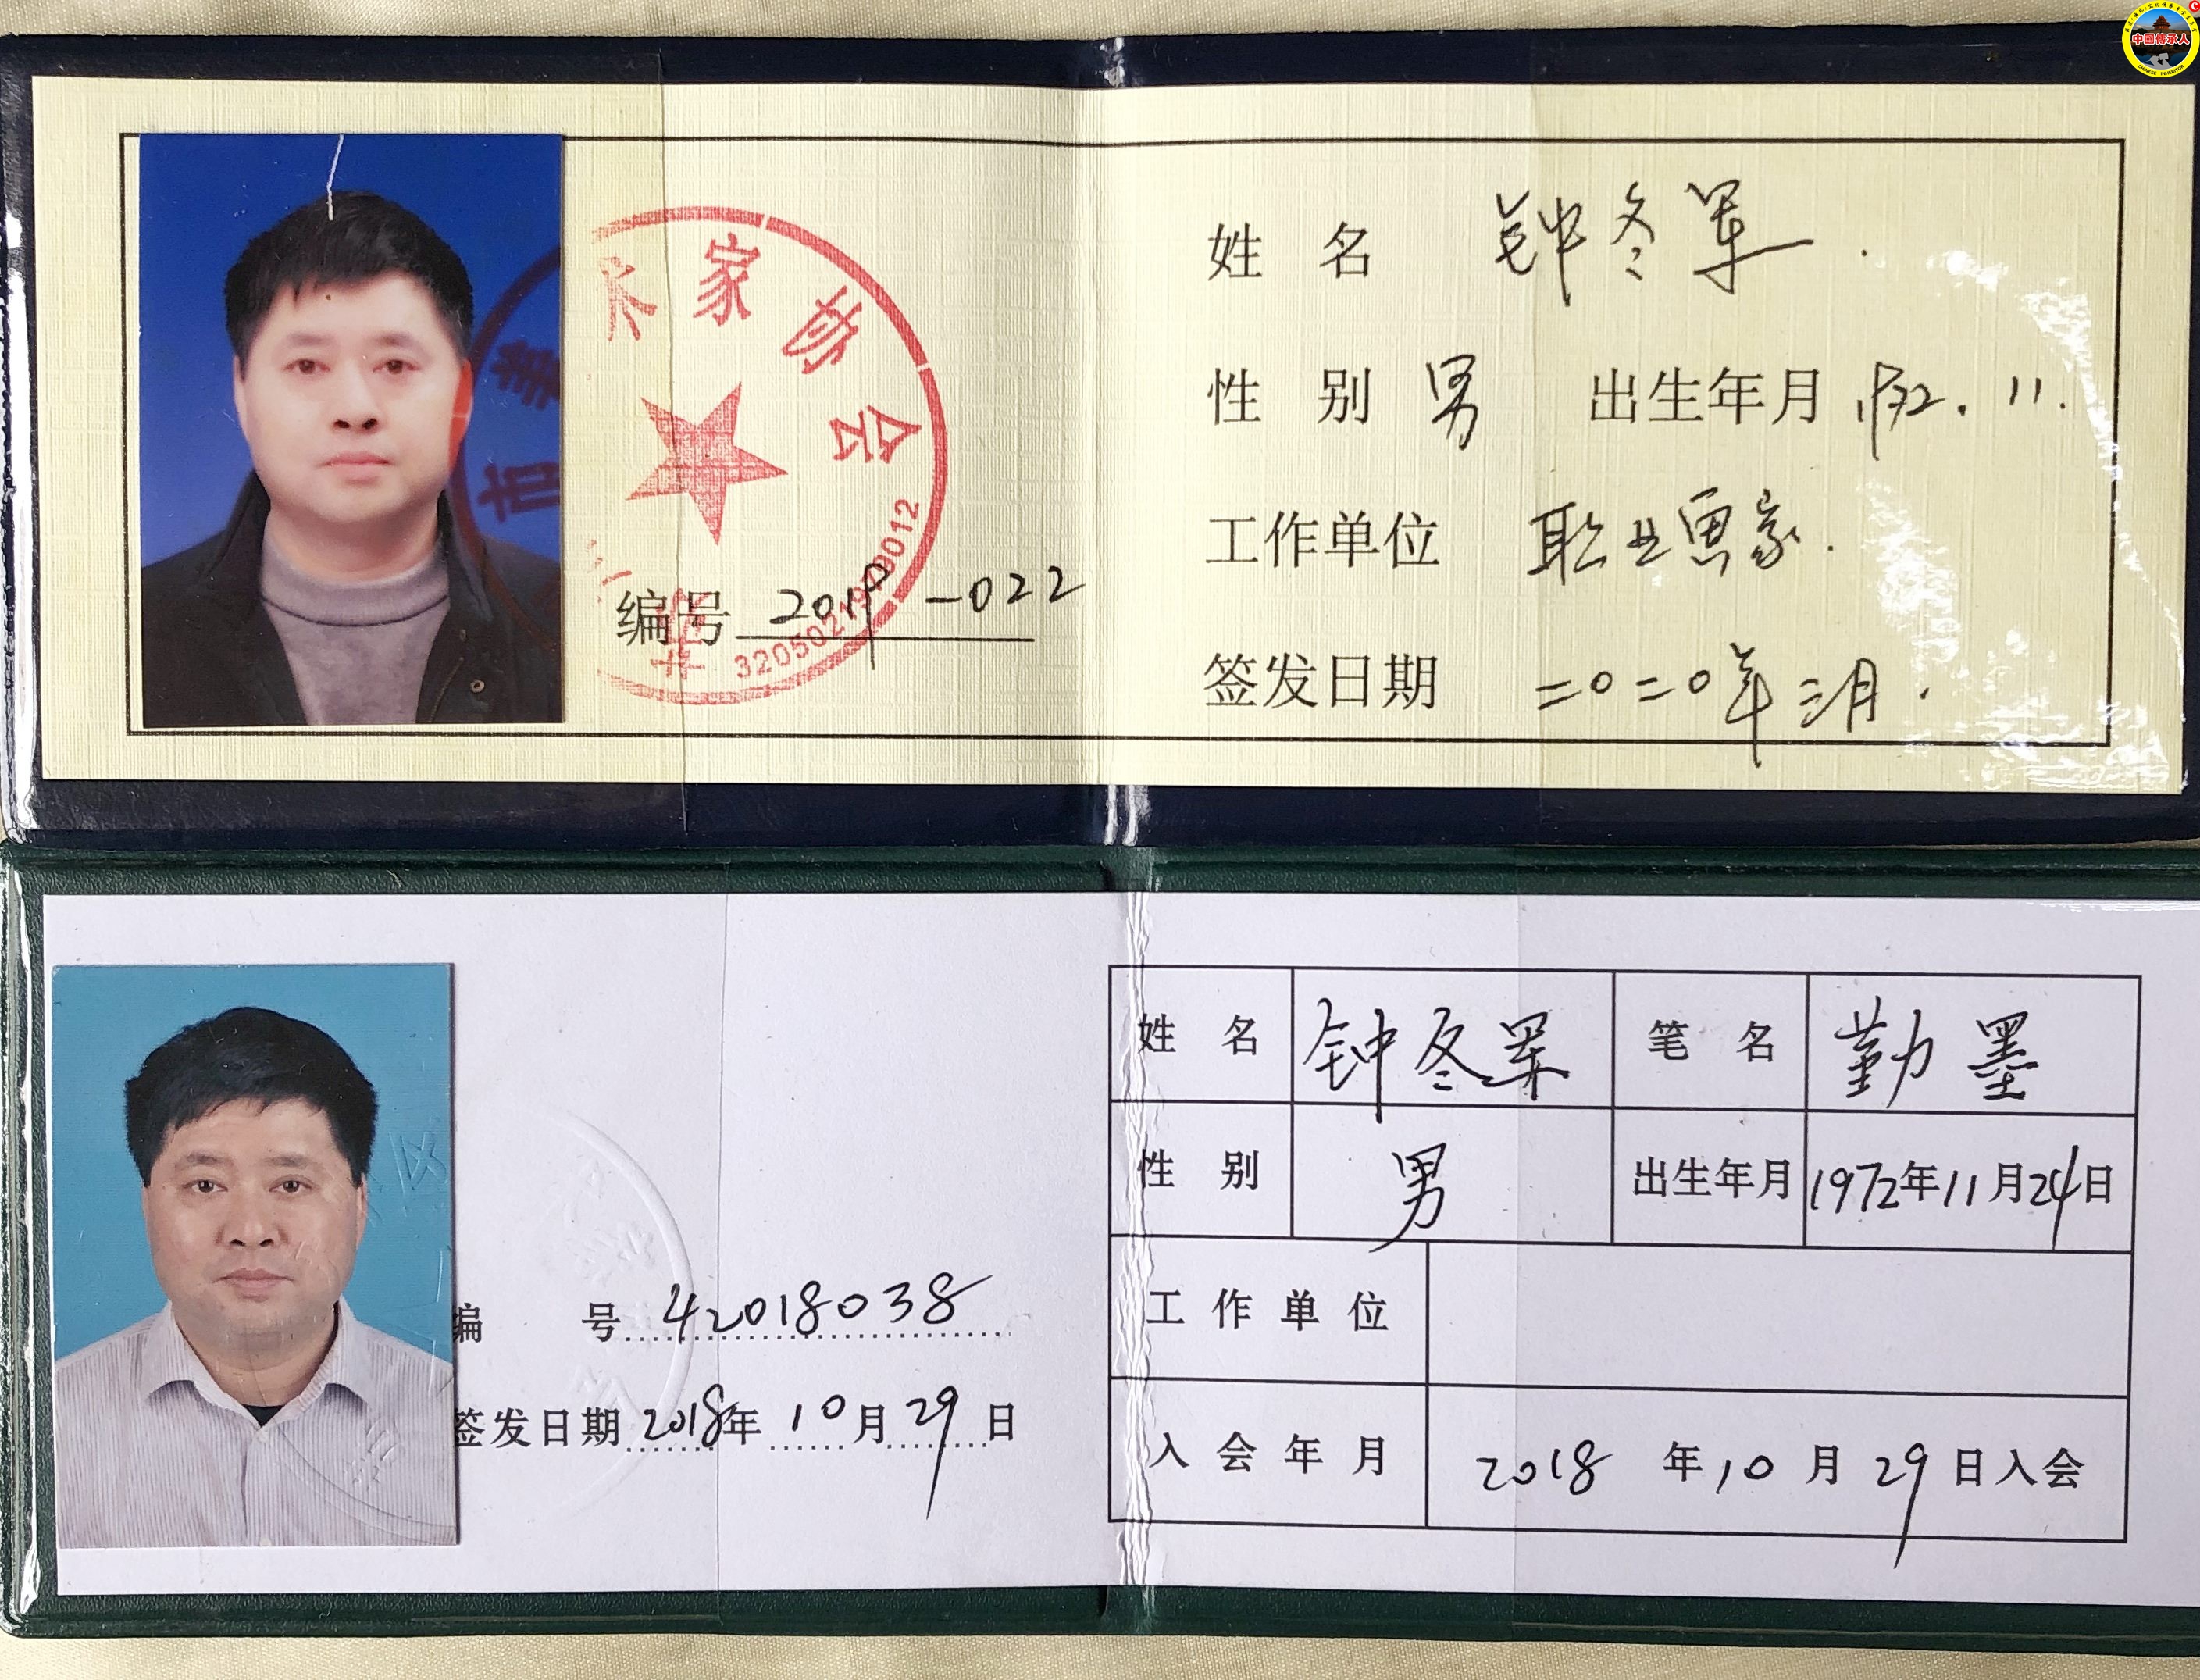 中國傳承人
CHINESE INHERITOR
市 美术家协会
3205021970012
编号 2019-022
姓名 钟冬军
性别 男 出生年月 1972.11.
工作单位 职业画家.
签发日期 二〇二〇年三月.
编号 42018038
签发日期 2018年10月29日
姓名 钟冬军 笔名 勤墨
性别 男 出生年月 1972年11月24日
工作单位
入会年月 2018年10月29日入会